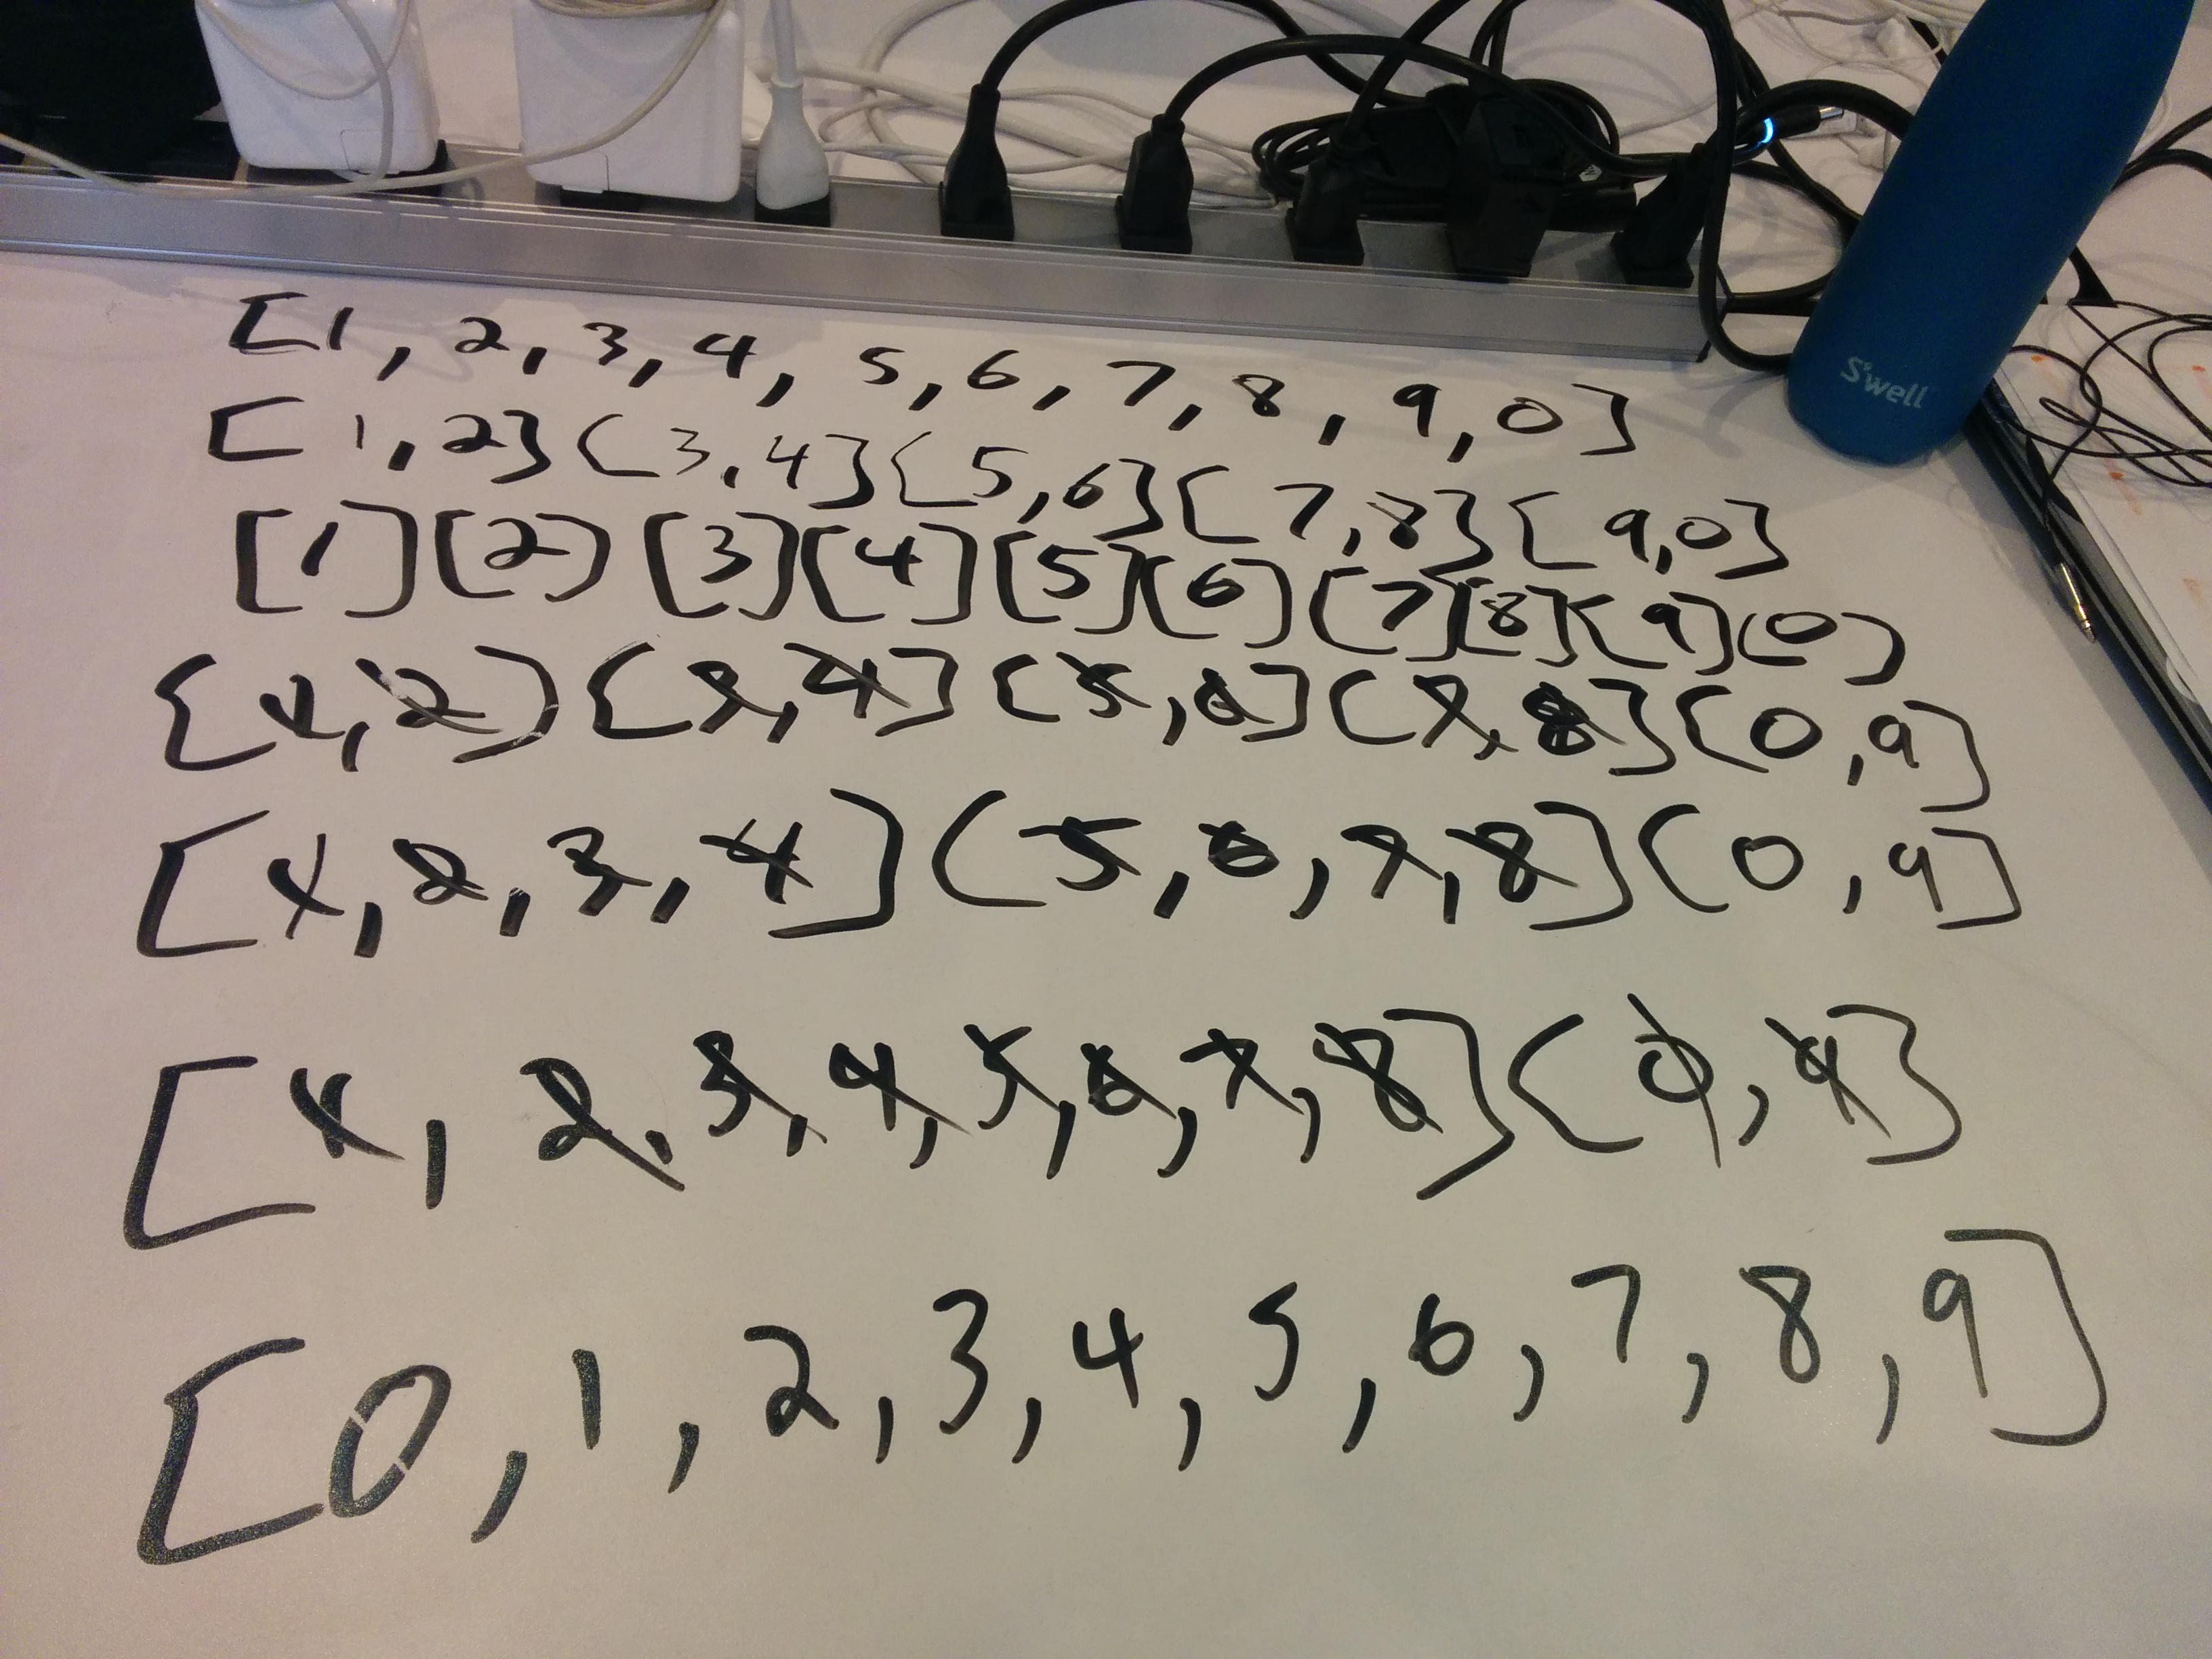 [1, 2, 3, 4, 5, 6, 7, 8, 9, 0]
[1, 2] [3, 4] [5, 6] [7, 8] [9, 0]
[1] [2] [3] [4] [5] [6] [7] [8] [9] [0]
[1, 2] [3, 4] [5, 6] [7, 8] [0, 9]
[1, 2, 3, 4] [5, 6, 7, 8] [0, 9]
[1, 2, 3, 4, 5, 6, 7, 8] [0, 9]
[0, 1, 2, 3, 4, 5, 6, 7, 8, 9]
S'well